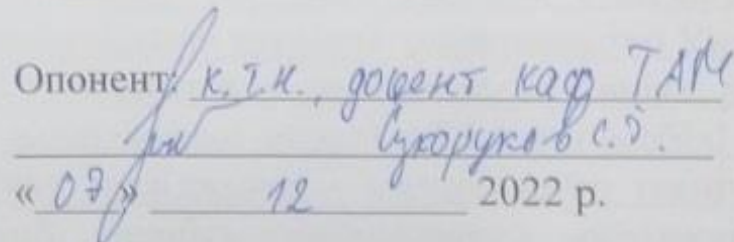 Опонент: к.т.н., доцент каф ТАМ
Сухоруков С.
« 07 » 12 2022 р.